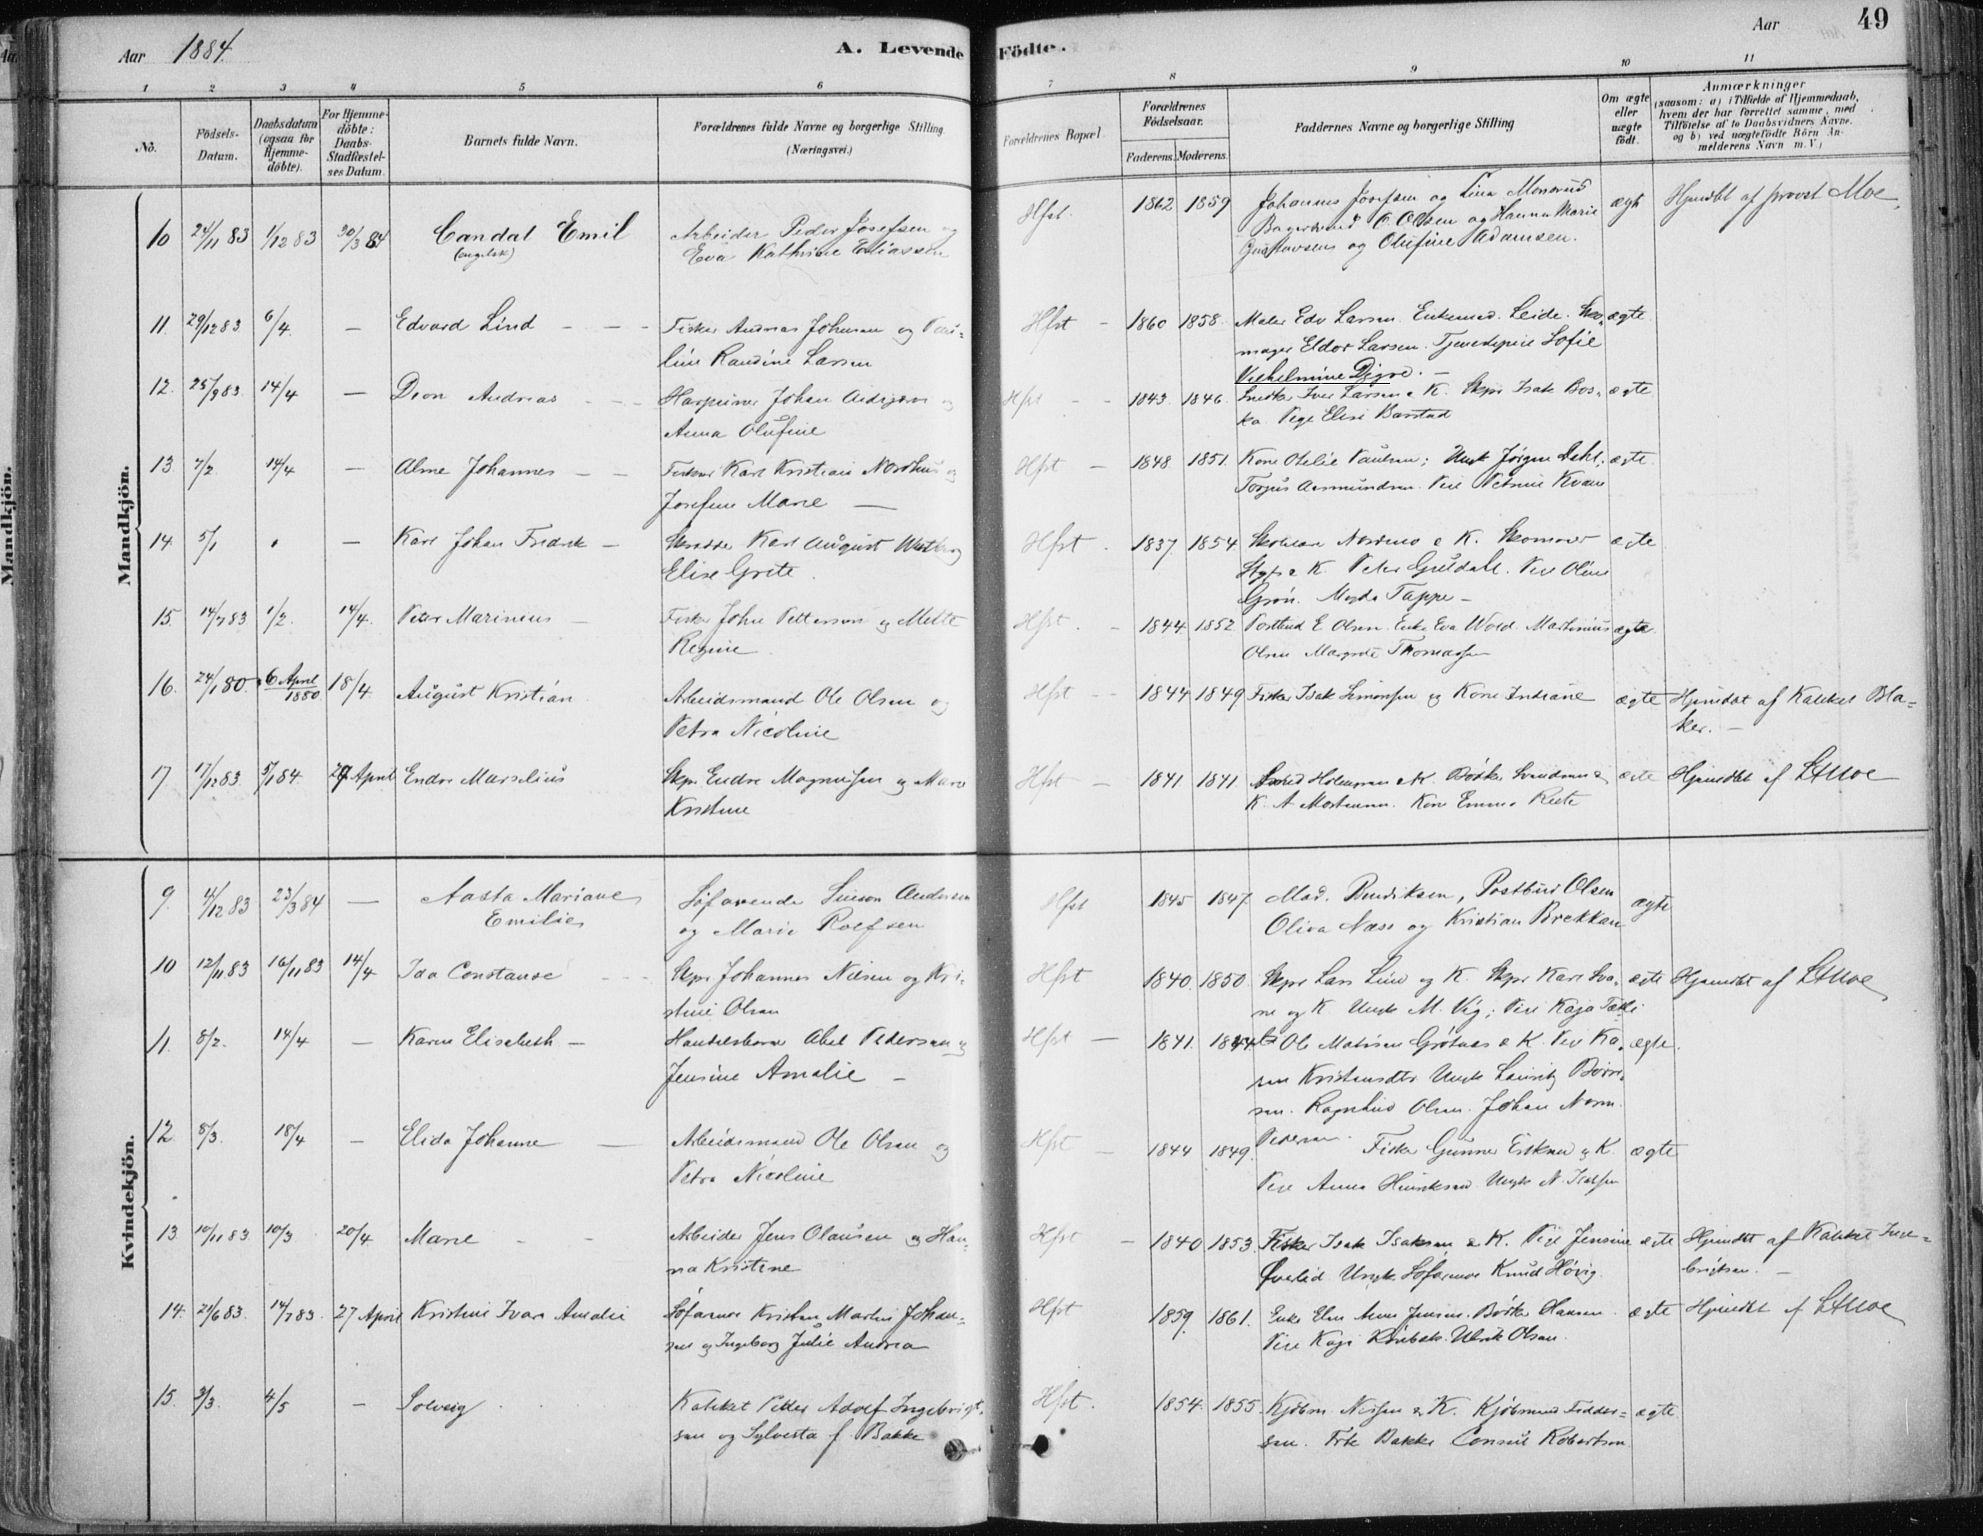 Aar 1884. A. Levende Födte. Aar 49
1 2 3 4 5 6 7 8 9 10 11
No. Födsels-Datum. Daabsdatum (ogsaa for Hjemme-döbte). For Hjemme-döbte: Daabs-Stadfæstel-ses Datum. Barnets fulde Navn. Forældrenes fulde Navne og borgerlige Stilling (Næringsvei.) Forældrenes Bopæl. Forældrenes Födselsaar. Faderens. Moderens. Faddernes Navne og borgerlige Stilling Om ægte eller uægte født. Anmærkninger (saasom: a) i Tilfælde af Hjemmedaab, hvem der har forrettet samme, med Tilföielse af to Daabsvidners Navne, og b) ved uægtefödte Börn An-melderens Navn m. V.)
Mandkjön.
10 24/11 83 1/12 83 30/3 84 Candal Emil Arbeider Peder Josefsen og Hfst. 1862 1859 Johannes Josefsen og Lina Monsrud ægte Hjmdbt af provst Moe
(engelsk) Eva Kathrine Eliassen Olsen og Hanna Marie
Gustavsens og Olufine Adamsen.
11. 29/12 83 6/4. — Edvard Lind — — — Fisker Andreas Johnsen og Pau- Hfst — 1860 1858. Maler Edv Larsen. Enkemad. Leide. Sko- ægte
line Randine Larsen mager Eldor Larsen. Tjenestepige Sofie
Vilhelmine Digre. —
12. 25/9 83 14/4 — Dion Andreas - - - Harpuner Johan og Hfst - - 1843. 1846. Snedk Iver Larsen & K. Skpr Isak Bos- ægte
Anna Olufine ka Pige Elise Barstad
13 7/2 14/4 — Alme Johannes — — Fisker Karl Kristian Nordhus og Hfst — 1848 1851. Kone Otelie Paulsen; Ungk Jörgen Dehl; ægte
Josefine Marie — Torgus Aasmundsen. Pige Petrine Kvam
14. 5/1 " — Karl Johan Fredrik — Skrædder Karl August Westberg Hfst. 1837 1854 Nordmo & K. Skomager ægte
Elise Grete. & K. Peter Guldahl. Pige Oline
Grön. Magda Tappe —
15. 14/7 83 1/2. 14/4. Peter Marinius — Fisker Johan Pettersen og Mette Hfst. - 1844 1852 Postbud E Olsen. Enke Eva Wold. Martinius ægte.
Regine. Olsen Margrete Thomassen
16. 24/1 80. 6 April 1880 18/4 August Kristian Arbeidsmand Ole Olsen og Hfst -- 1844 1849 Fisker Isak Simonsen og Kone Indiane ægte Hjmdbt af Kateket Bla-
Petra Nicoline ker. —
17 17/12 83. 5/1 84 27 April Endre Marselius Skpr. Endre Magnussen og Marie Hfst — 1841. 1841. Holmgren & K. Bödker Svendsen & ægte Hjmdbt af LAMoe
Kristine K. A Mortensen. Kone Emma Reite
Kvindekjön.
9. 4/12 83 23/3 84 — Aasta Mariane Söfarende Simon Andersen Hfst 1845 1847 Mad. Bendiksen, Postbud Olsen ægte
Emilie og Marie Roefsen Oliva Næss og Kristian Brekkan
10 12/11 83 16/11 83 14/4 Ida Constanse - - Skpr Johannes Nilsen og Kri- Hfst 1840. 1850. Skpr Lars Lind og K. Skpr Karl Sva- ægte Hjemdbt af LAMoe
stine Olsen ne og K Ungk M. Vig; Pige Kaja
11. 8/2. 14/4 — Karen Elisabeth — Handelsborg Abel Pedersen og Hfst — 1841. 1844 Ole Matisen Grötnes & K. Pige Ka- ægte.
Jensine Amalie — ren Kristensdtr Ungk Lauritz
sen. Ragnhild Olsen. Johan Norm.
12. 8/3. 18/4 — Elida Johanne — Arbeidsmand Ole Olsen og Hfst — 1844 1849. Pedersen. Fisker Gunner Eriksen & K. ægte
Petra Nicoline Pige Anna Henriksen Ungk N. Isaksen
13 10/11 83 10/3 20/4 Marie - - Arbeider Jens Olausen og Han- Hfst — 1840 1853. Fisker Isak Isaksen & K. Pige Jensine ægte Hjmdbt af Kateket Inge-
na Kristine Överlid Ungk. Söfarende Knud Hövig. brigtsen. —
14. 21/6 83. 14/7 83. 27 April Kristine Ivara Amalie Söfarende Kristen Martin Johan- Hfst 1859. 1861. Enke Elen Anna Jensen. Bödker Hansen. ægte Hjmdbt af LAMoe
sen og Ingeborg Julie Andrea Pige Kaja Ulrik Olsen.
15. 3/3. 4/5 — Solveig Kateket Petter Adolf Ingebrigt- Hfst. 1854. 1855. Kjöbm. Nissen & K. Kjöbmand Fedder- ægte
sen og Sylvesta f. Bakke sen. Frk Bakke Consul Robertson